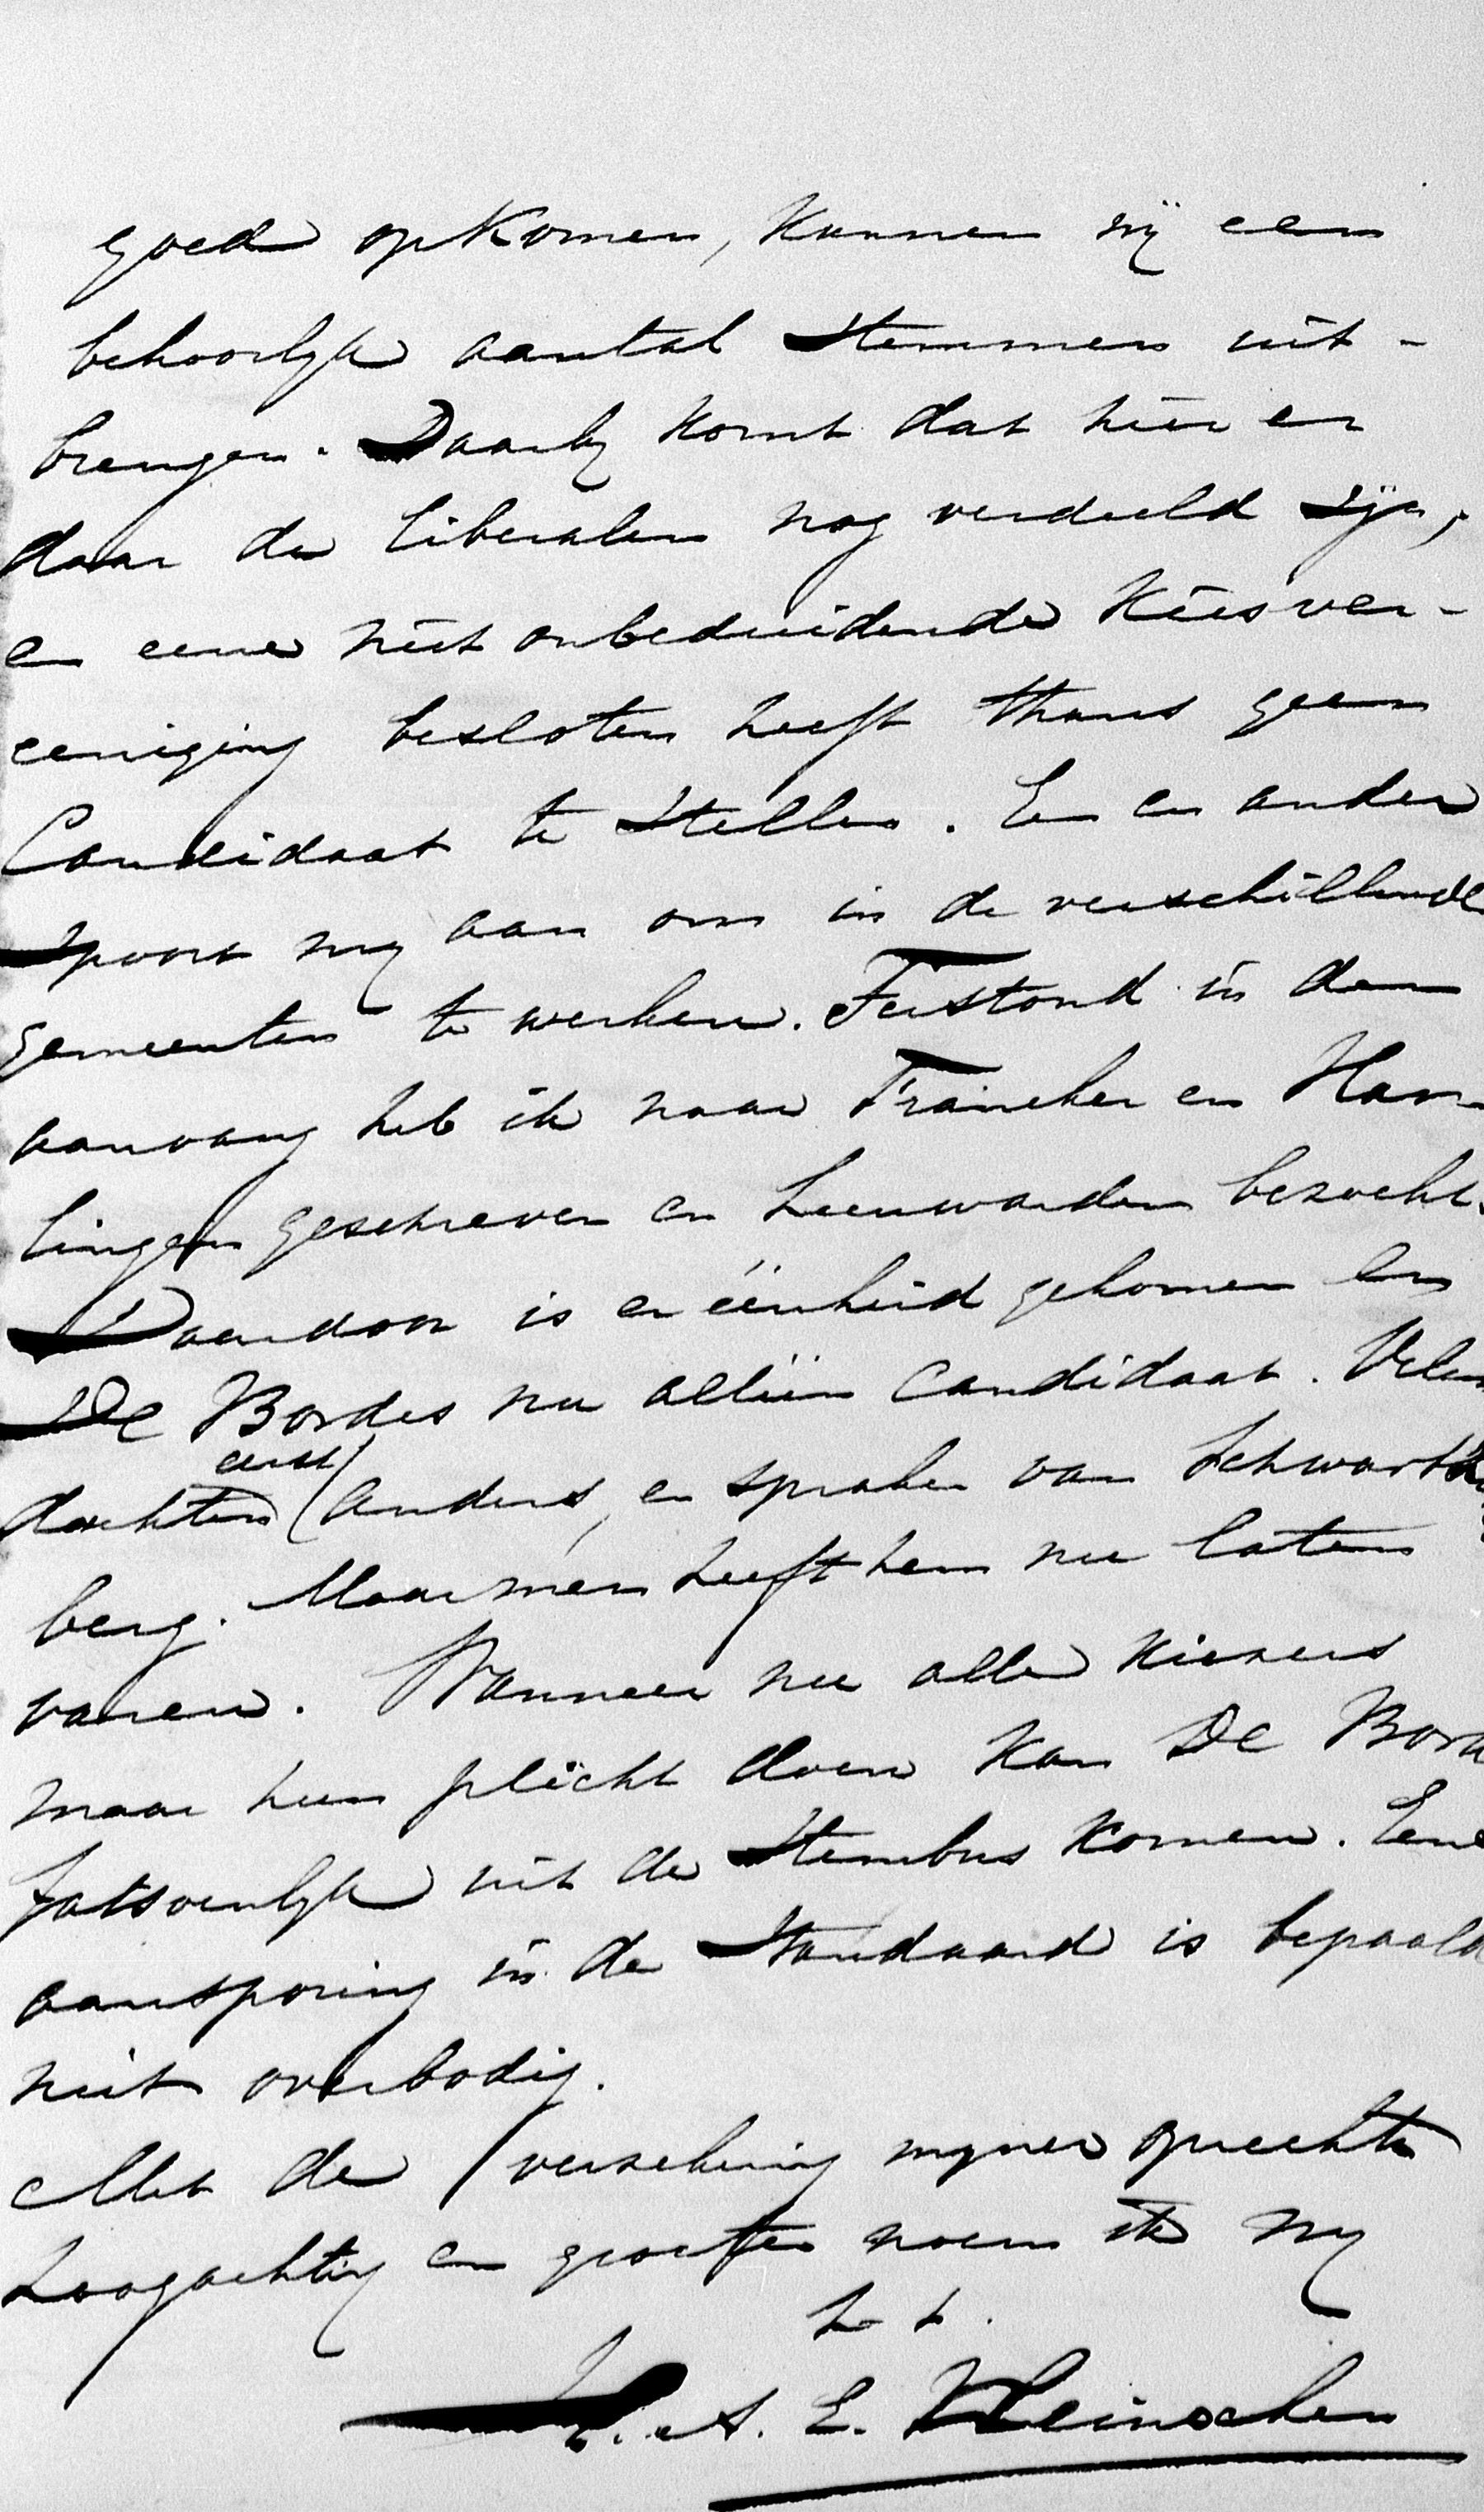 goed opkomen, kunnen wij een
behoorlijk aantal stemmen uit-
brengen. Daarbij komt dat hier en
daar de liberalen nog verdeeld zijn,
en eene niet onbeduidende Kiesver-
eeniging besloten heeft thans geen
Candidaat te stellen. Een en ander
spoort mij aan om in de verschillende
gemeenten te werken. Terstond in den
aanvang heb ik naar Franeker en Har-
lingen geschreven en Leeuwarden bezocht.
Daardoor is er éénheid gekomen en
De Bordes nu alléén Candidaat. Velen
dachten eerst anders, en spraken van Schwartzen
berg. Maar men heeft hem nu laten
varen. Wanneer nu alle kiezers
maar hun plicht doen kan De Bord
fatsoenlijk uit de stembus komen. Eene
aansporing in de Standaard is bepaald
niet overbodig.
Met de verzekering mijner oprechte
hoogachting en groeten noem ik mij
A. E.